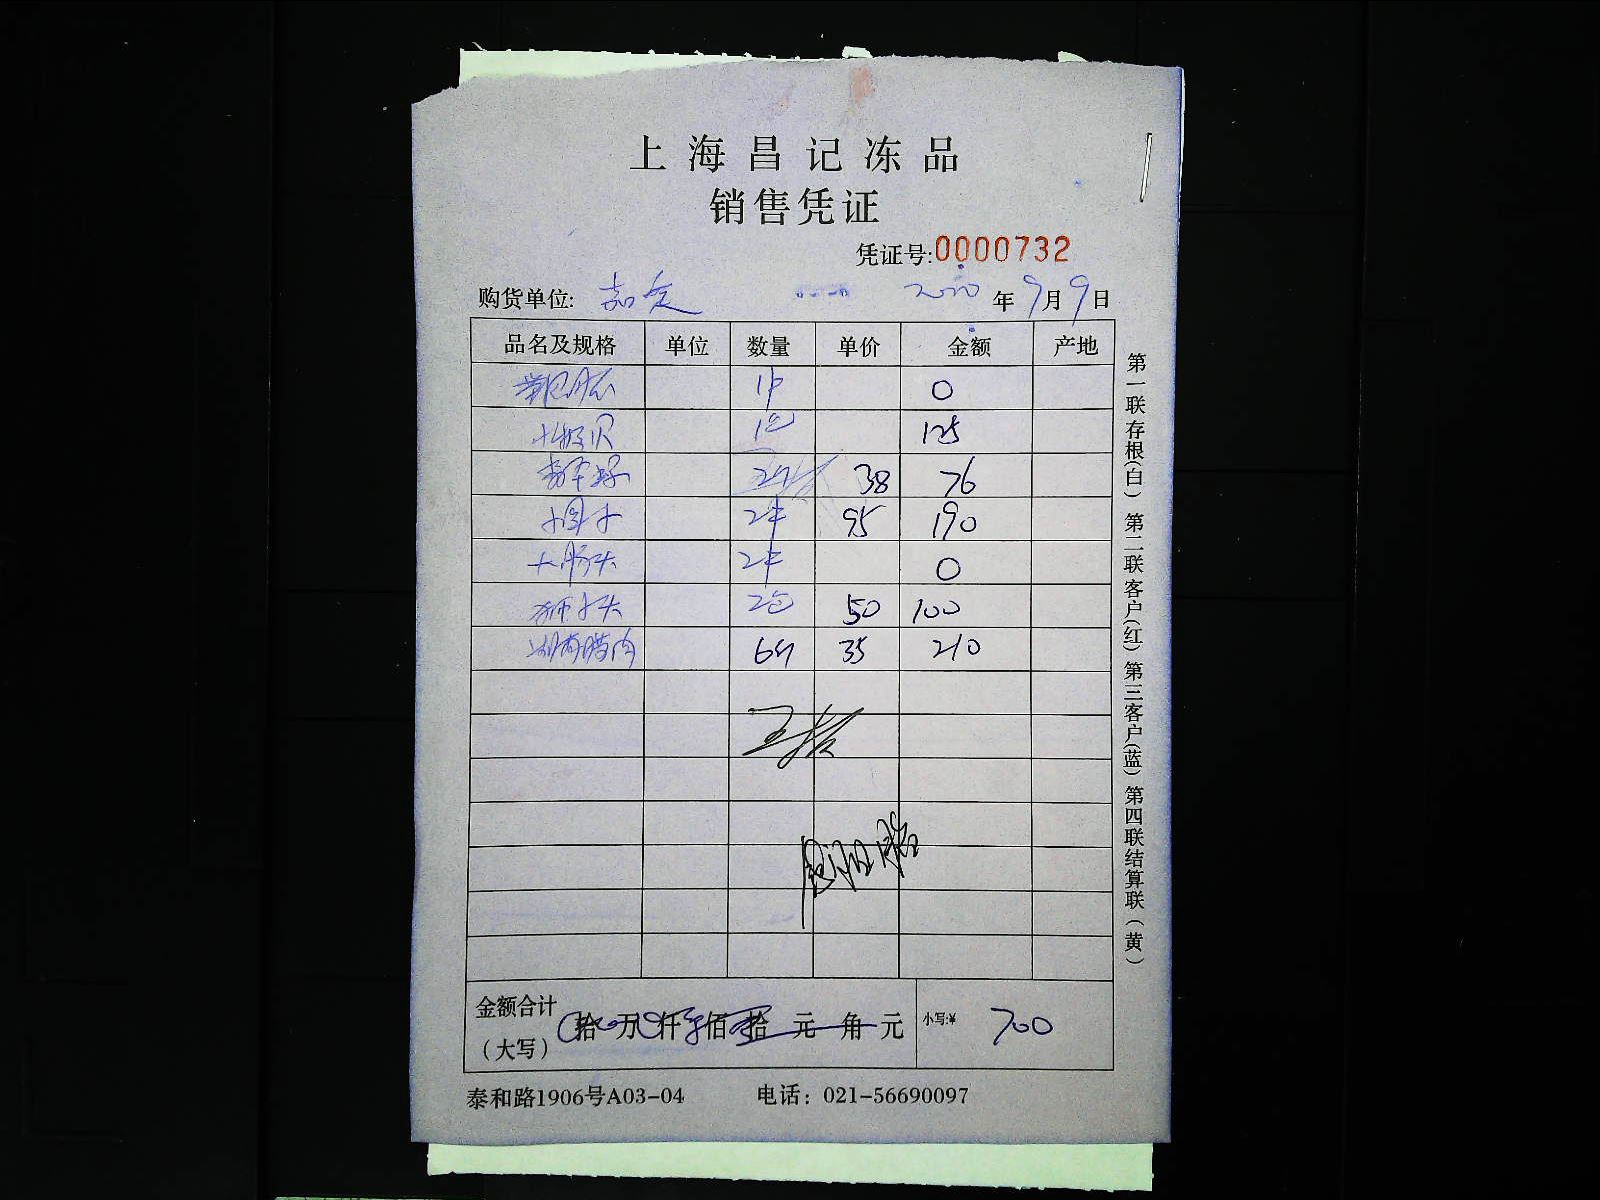 上海昌记冻品
销售凭证
凭证号:0000732
购货单位: 嘉定 2020年9月9日
品名及规格 单位 数量 单价 金额 产地
1件 0
北极贝 1包 125
38 76
2件 95 190
大肠头 2件 0
狮子头 2包 50 100
湖南腊肉 6斤 35 210
金额合计
(大写) 拾 万 仟 佰 拾 元 角 元 小写:¥ 700
泰和路1906号A03-04 电话: 021-56690097
第一联存根(白) 第二联客户(红) 第三客户(蓝) 第四联结算联(黄)